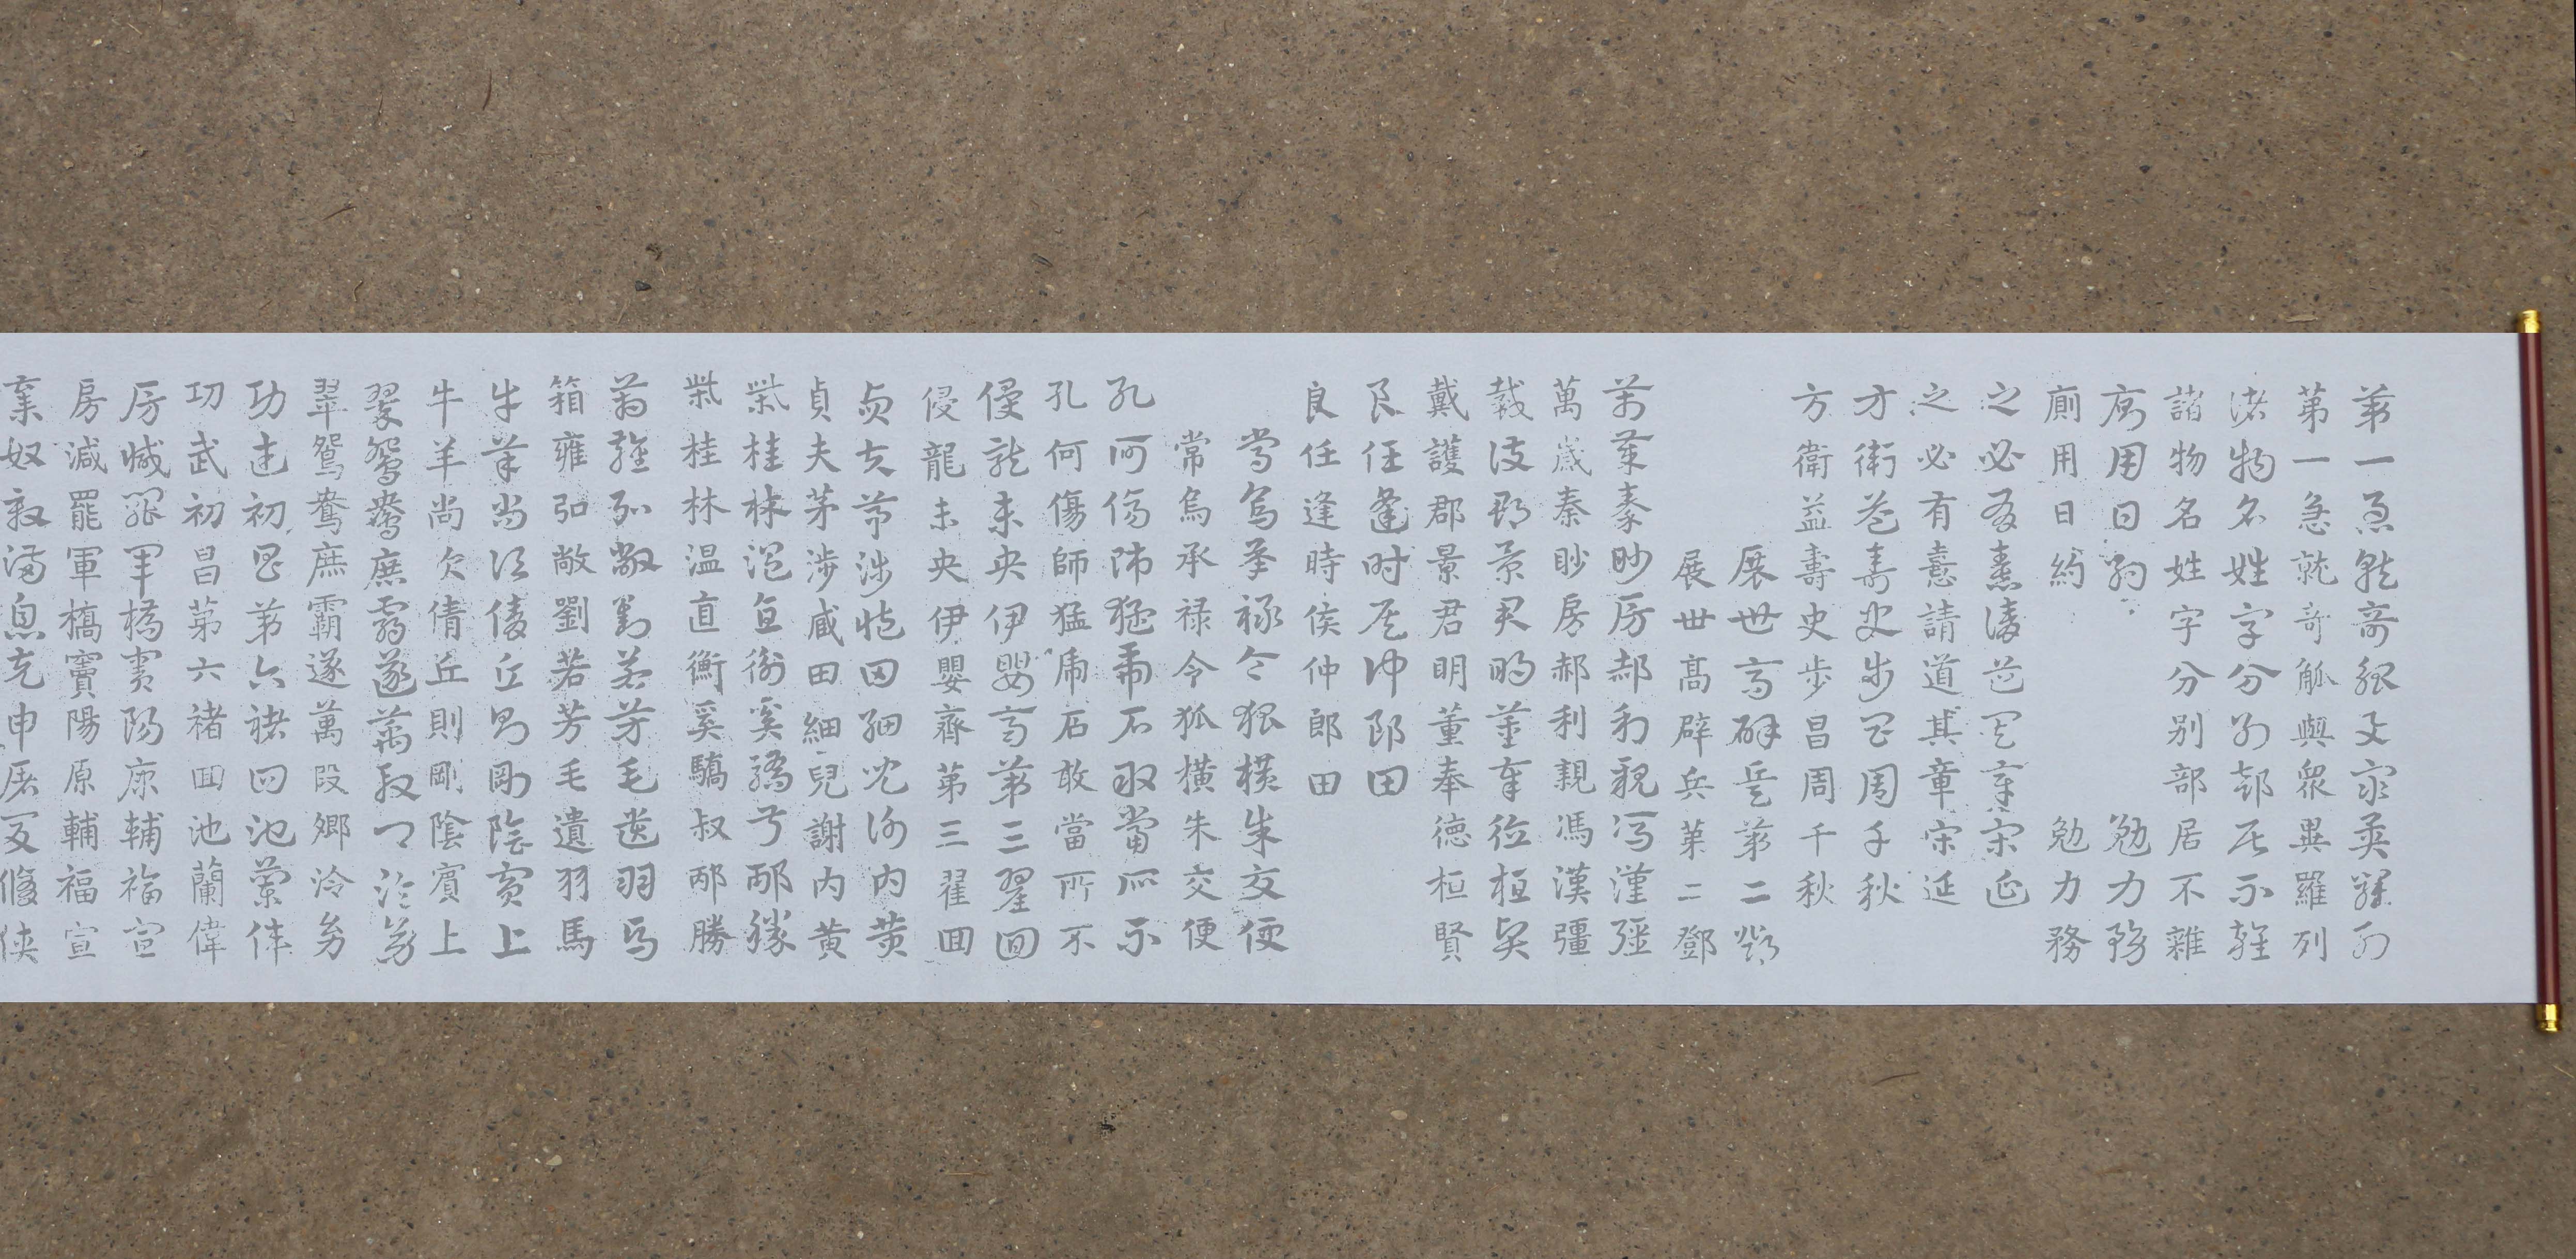 第一急就奇觚與衆異羅列
第一急就奇觚與衆異羅列
諸物名姓字分别部居不雜
諸物名姓字分别部居不雜
廁用日約勉力務
廁用日約勉力務
之必有憙請道其章宋延
之必有憙請道其章宋延
方衛益壽史步昌周千秋
方衛益壽史步昌周千秋
展世高辟兵第二鄧
展世髙辟兵第二鄧
萬歲秦眇房郝利親馮漢彊
萬歲秦眇房郝利親馮漢彊
戴護郡景君明董奉德桓賢
戴護郡景君明董奉徳桓賢
良任逢時侯仲郎田
良任逢時侯仲郎田
常烏承禄令狐橫朱交便
常烏承禄令狐橫朱交便
孔何傷師猛虎石敢當所不
孔何傷師猛虎石敢當所不
侵龍未央伊嬰齊第三翟回
侵龍未央伊嬰齊第三翟回
貞夫茅涉臧田細兒謝内黃
貞夫茅涉臧田細兒謝内黃
柴桂林温直衡奚驕叔邴勝
柴桂林温直衡奚驕叔邴勝
箱雍弘敞劉若芳毛遺羽馬
箱雍弘敞劉若芳毛遺羽馬
牛羊尚次倩丘則剛陰賓上
牛羊尚次倩丘則剛陰賓上
翠鴛鴦庶霸遂萬段卿泠幼
翠鴛鴦庶霸遂萬段卿泠幼
功武初昌第六褚回池蘭偉
功武初昌第六褚回池蘭偉
房減罷軍橋竇陽原輔福宣
房減罷軍橋竇陽原輔福宣
棄奴殷滿息充申屠夏脩俠